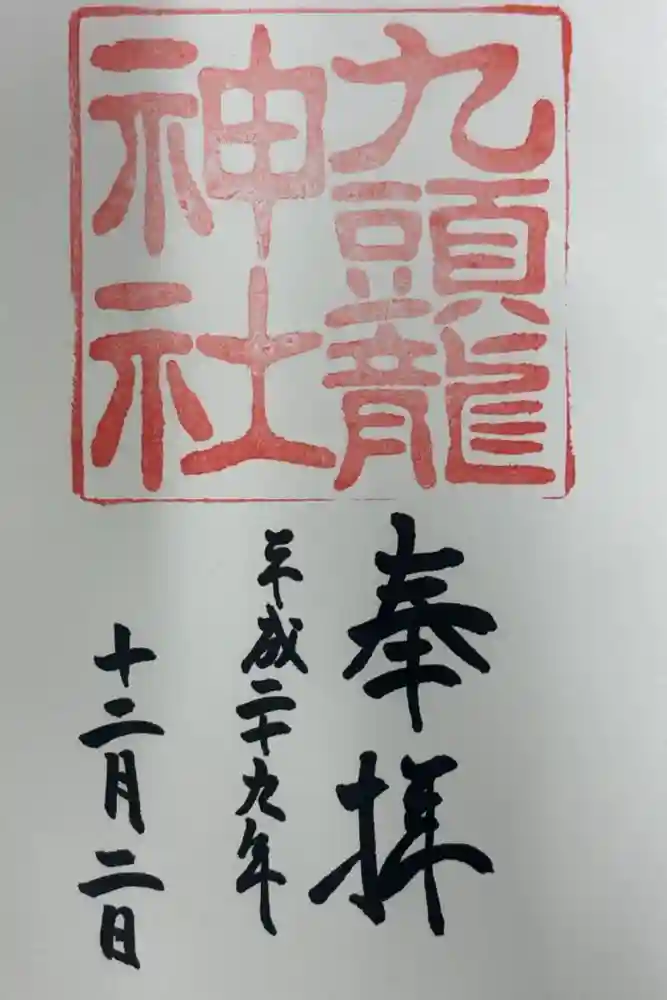 九頭龍
神社
奉拝
平成二十九年
十二月二日